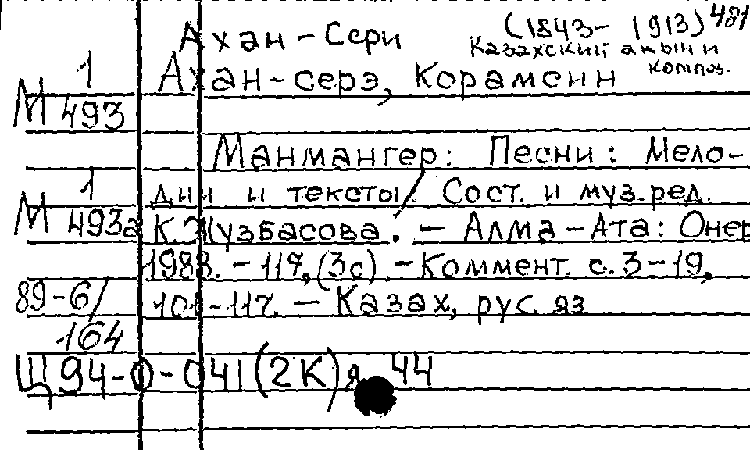 Ахан-Сери (1843- 1913) 481
Казахский акын и
композ.
1 Ахан-серэ, Корамсин
М 493
Манмангер: Песни: Мело-
1 дии и тексты / Сост. и муз.ред.
М 493а К.Жузбасова. - Алма-Ата: Онер
1988. - 117,(3с) - Коммент. с. 3-19,
89-6/ 101-117. - Казах, рус. яз
164
Щ94-0-041(2К)я 44